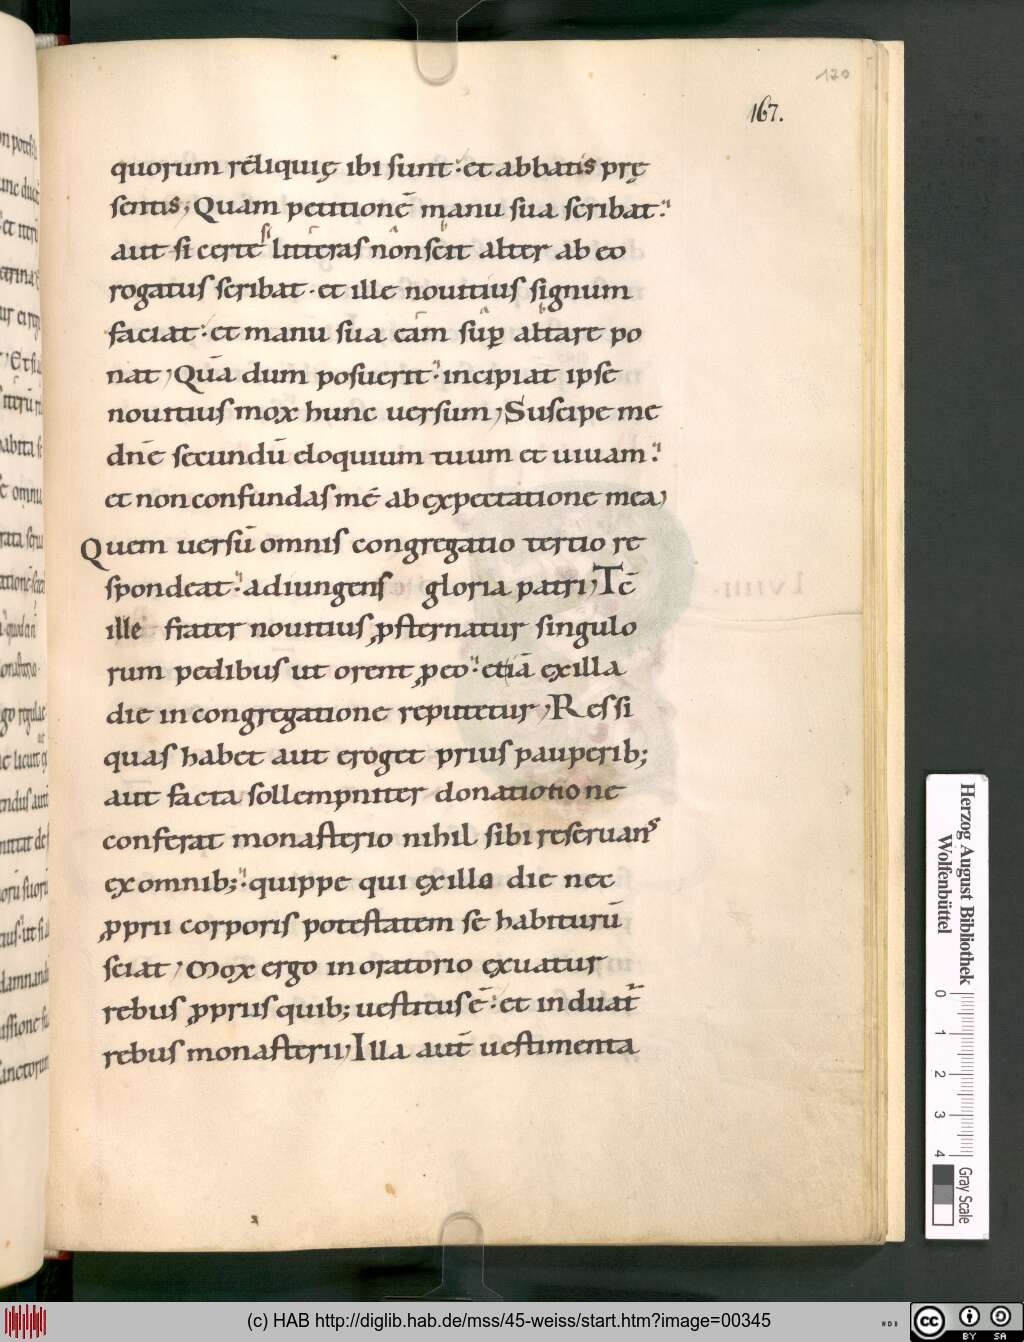 170
167.
quorum reliquię ibi sunt · et abbatis prę
sentis, Quam petitionē manu sua scribat ·
aut si certe si litteras non scit alter ab eo
rogatus scribat · et ille nouitius signum
faciat · et manu sua eam sup altare po
nat, Quā dum posuerit · incipiat ipse
nouitius mox hunc uersum, Suscipe me
dn̄e secundū eloquium tuum et uiuam ·
et non confundas me ab expectatione mea,
Quem uersū omnis congregatio tertio re
spondeat · adiungens gloria patri, Tc̄
ille frater nouitius ꝓsternatur singulo
rum pedibus ut orent ꝓ eo · etiā ex illa
die in congregatione reputetur, Res si
quas habet aut eroget prius pauperib;
aut facta sollempniter donationone
conferat monasterio nihil sibi reseruans
ex omnib; · quippe qui ex illo die nec
ꝓprii corporis potestatem se habiturū
sciat, Mox ergo in oratorio exuatur
rebus ꝓpriis quib; uestitus ē · et induat
rebus monasterii, Illa aut̄ uestimenta
Herzog August Bibliothek
Wolfenbüttel
0 1 2 3 4
Gray Scale
(c) HAB http://diglib.hab.de/mss/45-weiss/start.htm?image=00345
cc BY SA